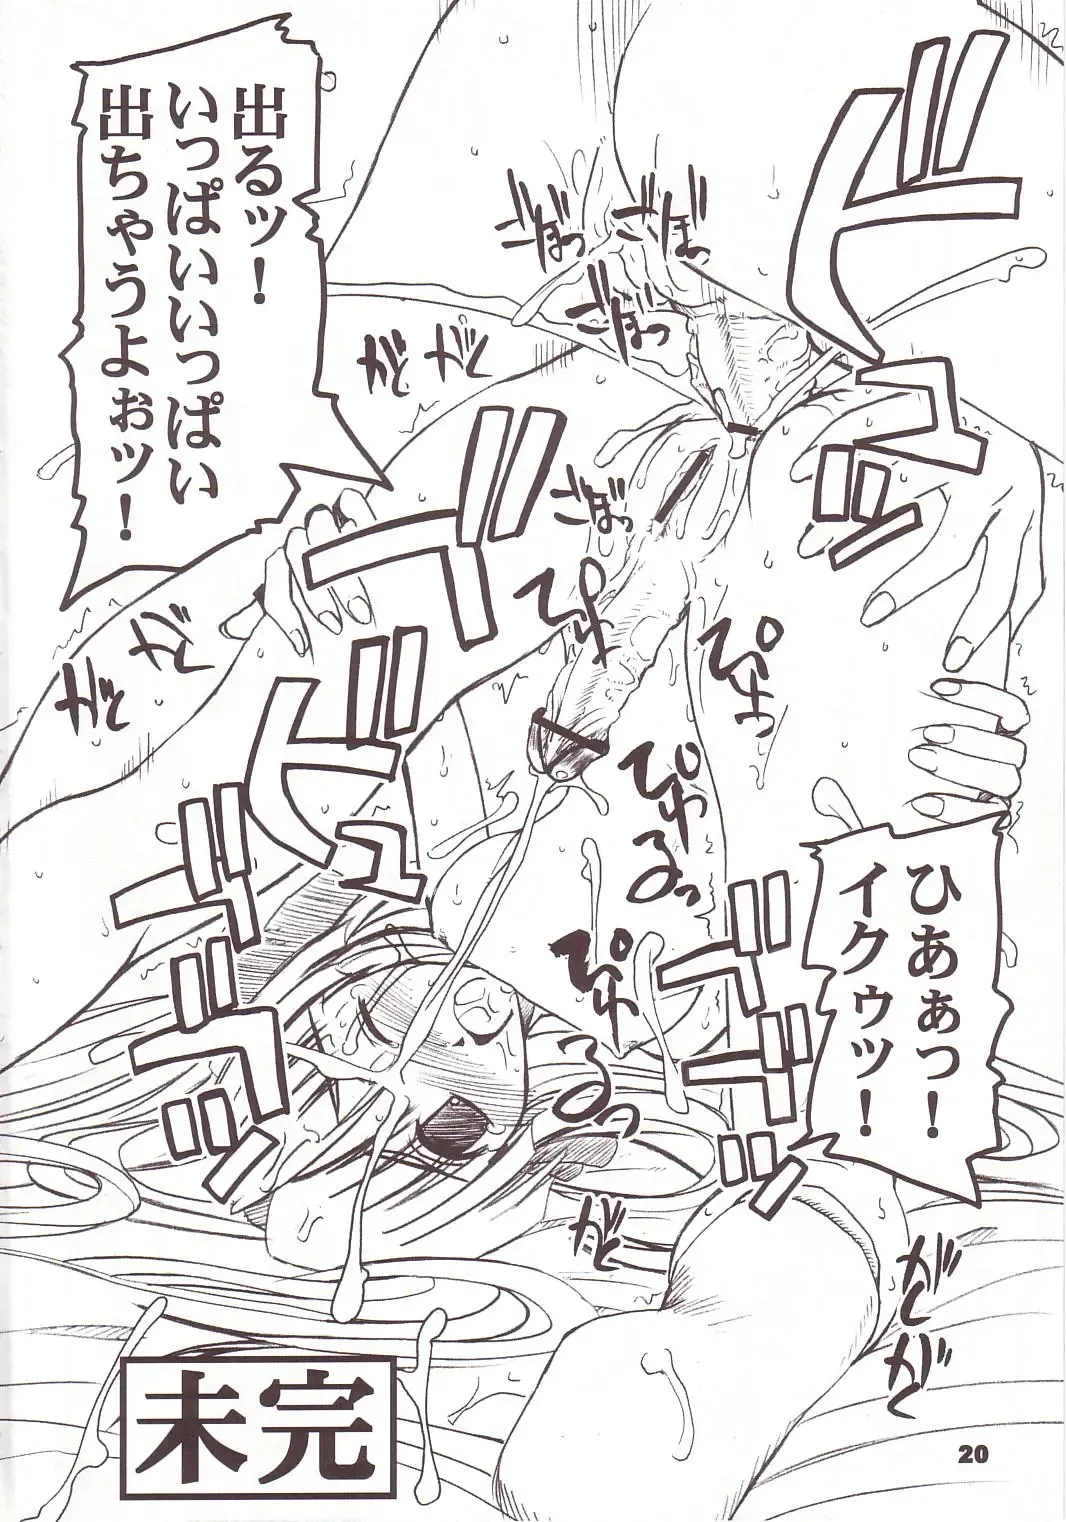 出るッ！
いっぱいいいっぱい
出ちゃうよぉッ！
ビュ
ごぼっ
ごぼっ
ごぼっ
ごぼっ
がく
がく
ぴゅ
ぴゅっ
ぴゅるっ
ぴゅるっ
ビュ
がく
がく
ひあぁっ！
イクゥッ！
がく
がく
がく
未完
20